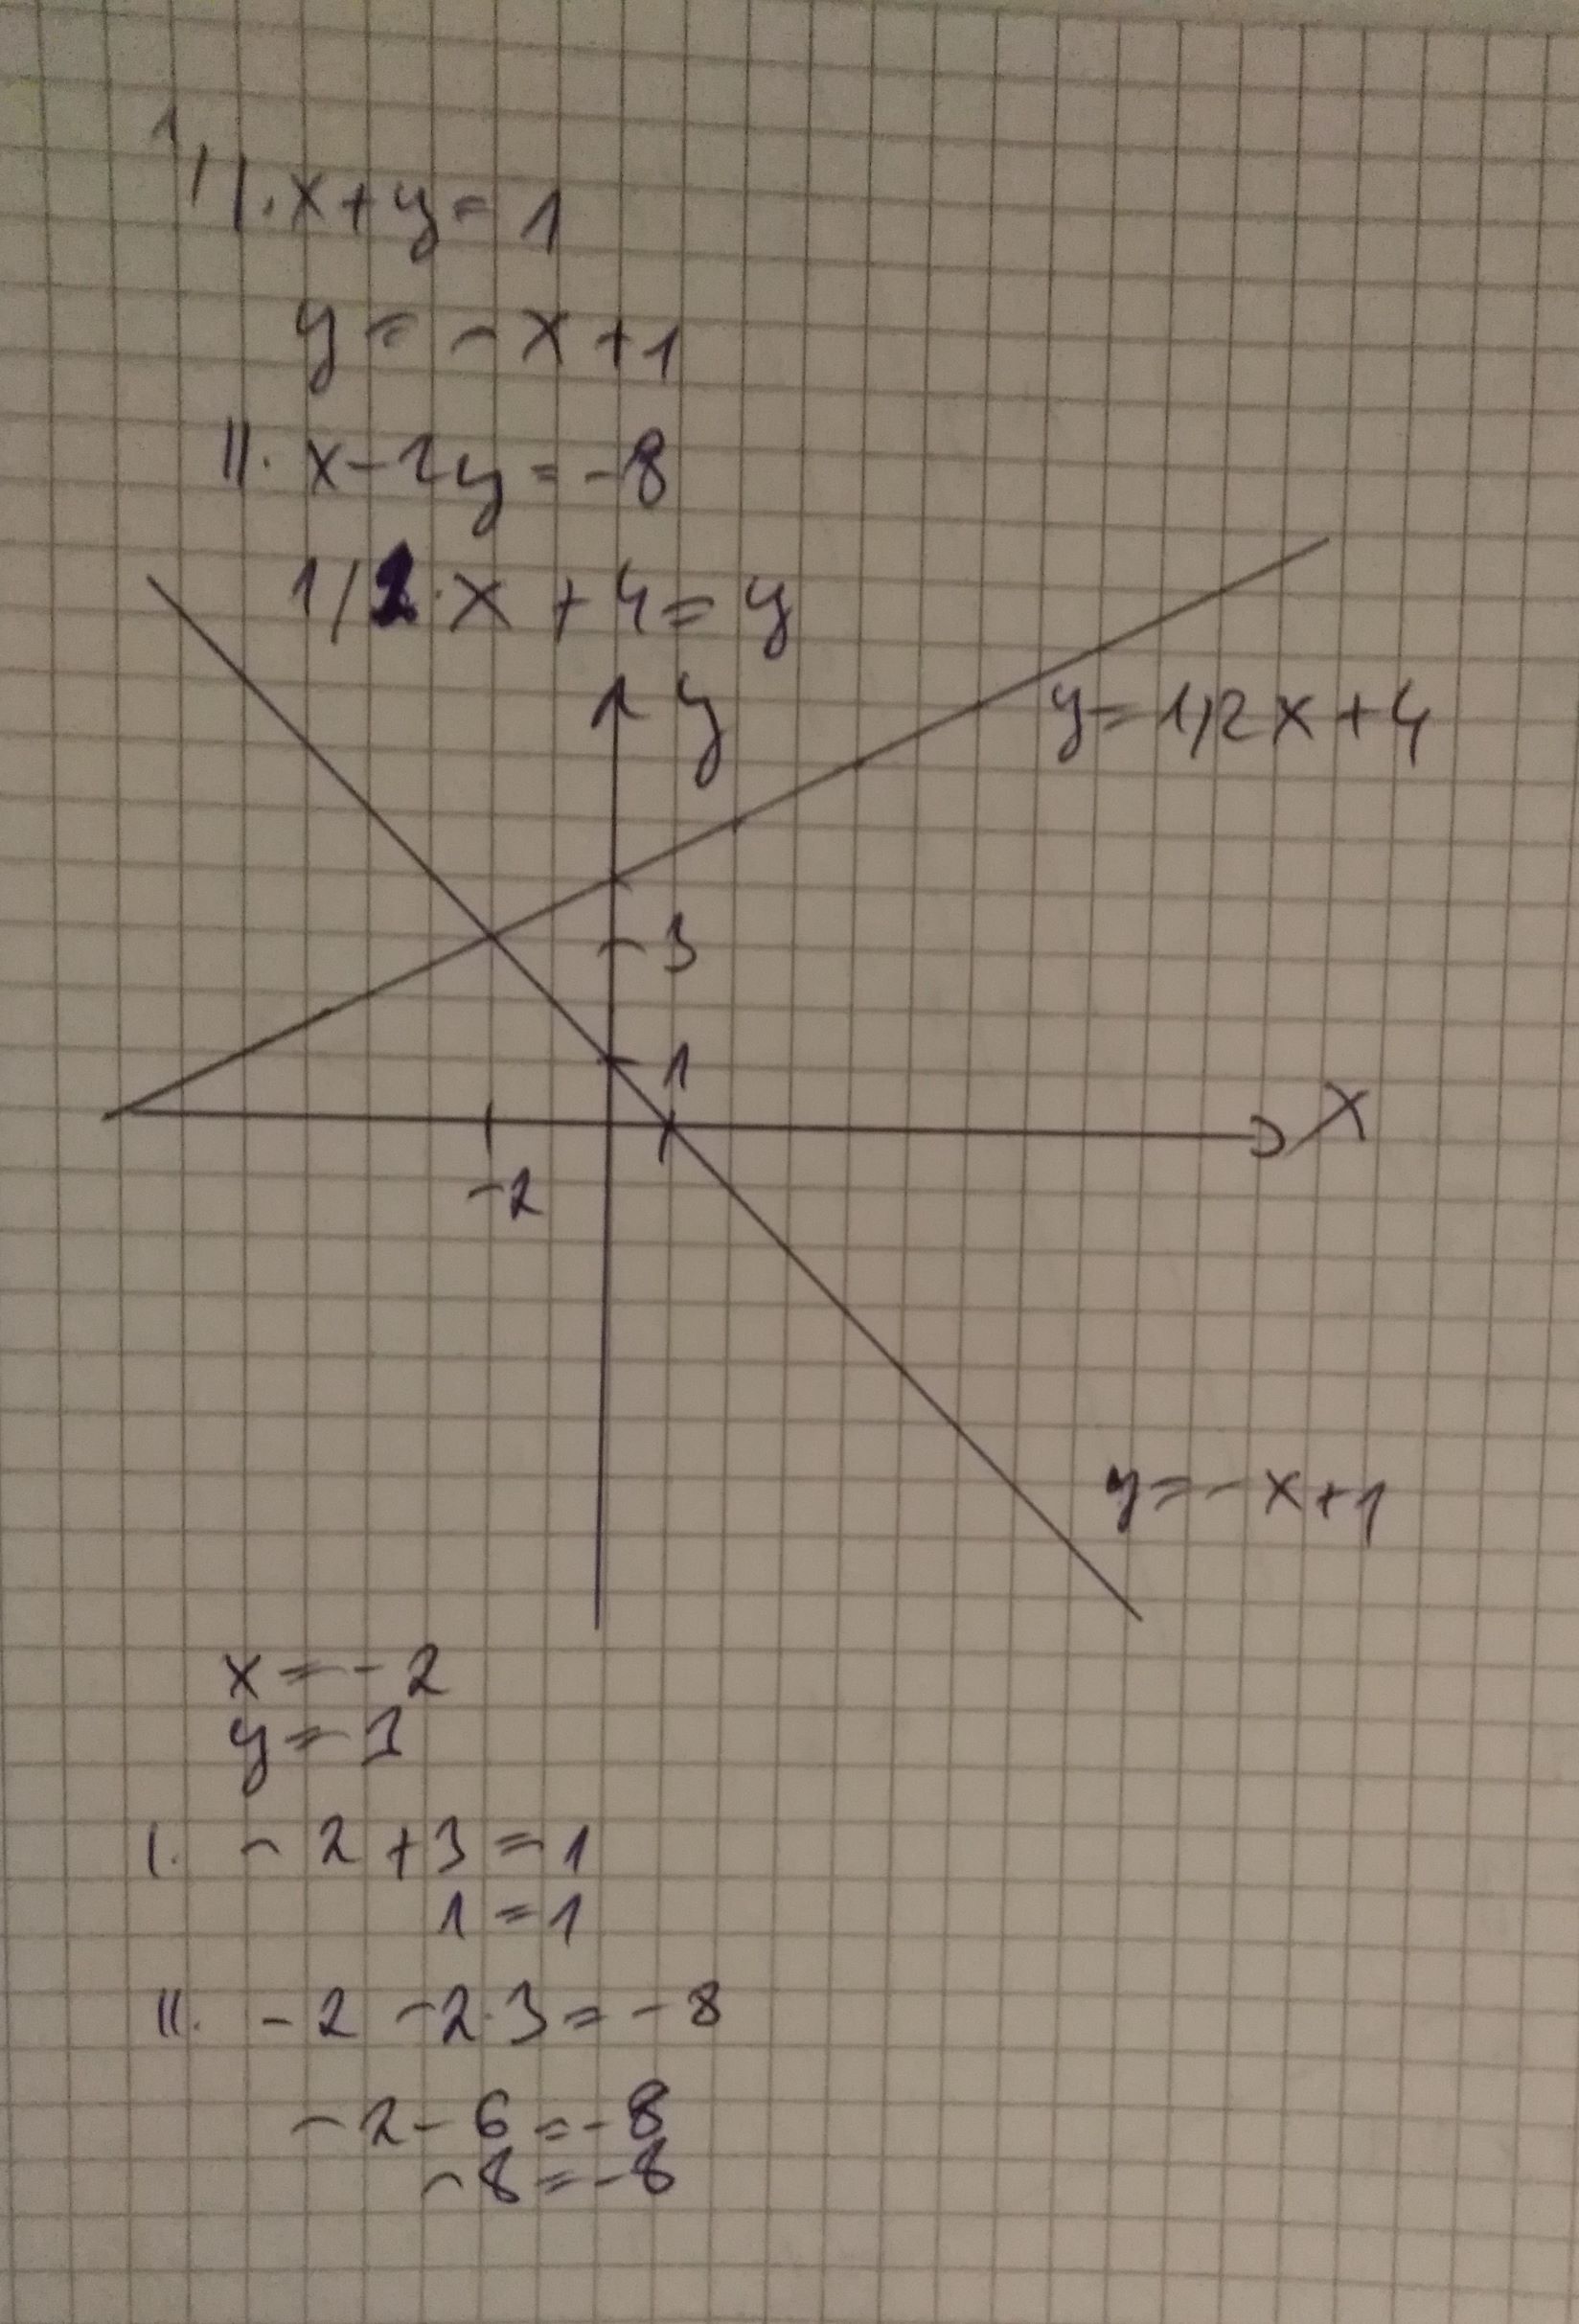 1/ I. x+y=1
y=-x+1
II. x-2y=-8
1/2·x+4=y
y
y=1/2x+4
3
1
x
-2
y=-x+1
x=-2
y=3
I. -2+3=1
1=1
II. -2-2·3=-8
-2-6=-8
-8=-8